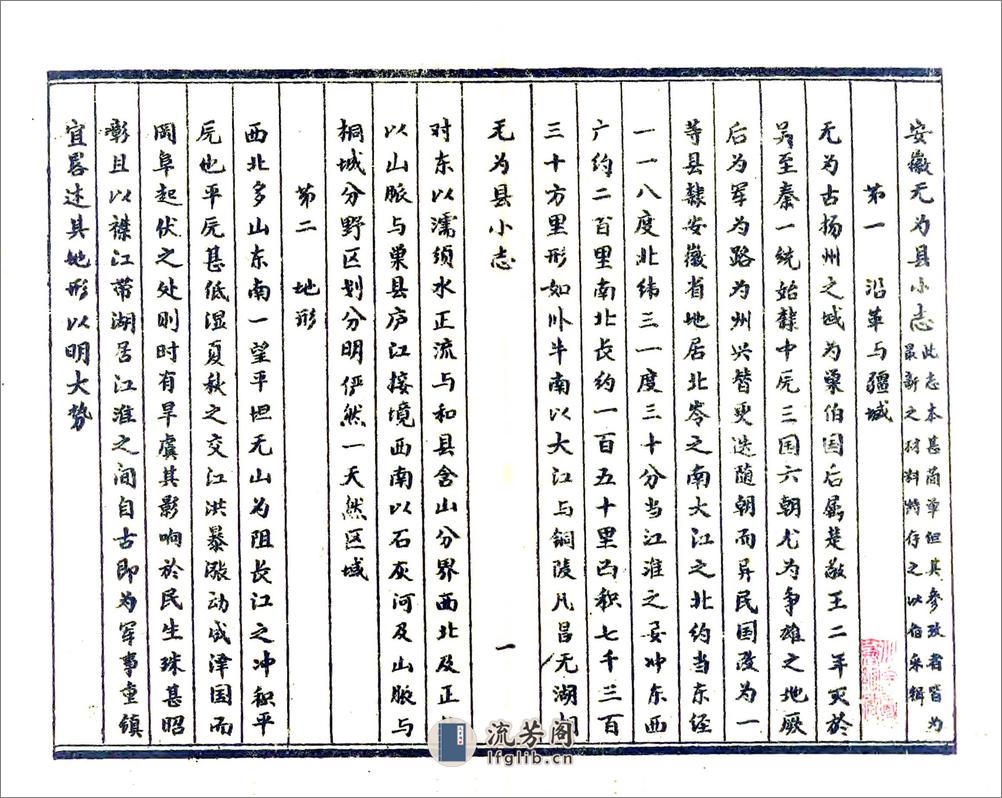 安徽无为县小志 此志本甚简单但其参考者皆为最新之材料特存之以俻采辑
第一 沿革与疆域
无为古扬州之域为巢伯国后属楚敬王二年灾於
吴至秦一统始隸中原三国六朝尤为争雄之地厥
后为军为路为州兴替更迭随朝而异民国改为一
等县隸安徽省地居北岺之南大江之北约当东经
一一八度北纬三一度三十分当江淮之要冲东西
广约二百里南北长约一百五十里面积七千三百
三十方里形如卧牛南以大江与铜陵凡昌无湖相
无为县小志
一
对东以濡须水正流与和县含山分界西北及正
以山脈与巢县庐江接境西南以石灰河及山脈与
桐城分野区划分明俨然一天然区域
第二 地形
西北多山东南一望平坦无山为阻长江之冲积平
原也平原甚低湿夏秋之交江洪暴涨动成泽国而
岡阜起伏之处则时有旱虞其影响於民生殊甚昭
彰且以襟江带湖居江淮之间自古即为军事重镇
宜畧述其地形以明大势
流芳阁
lfglib.cn